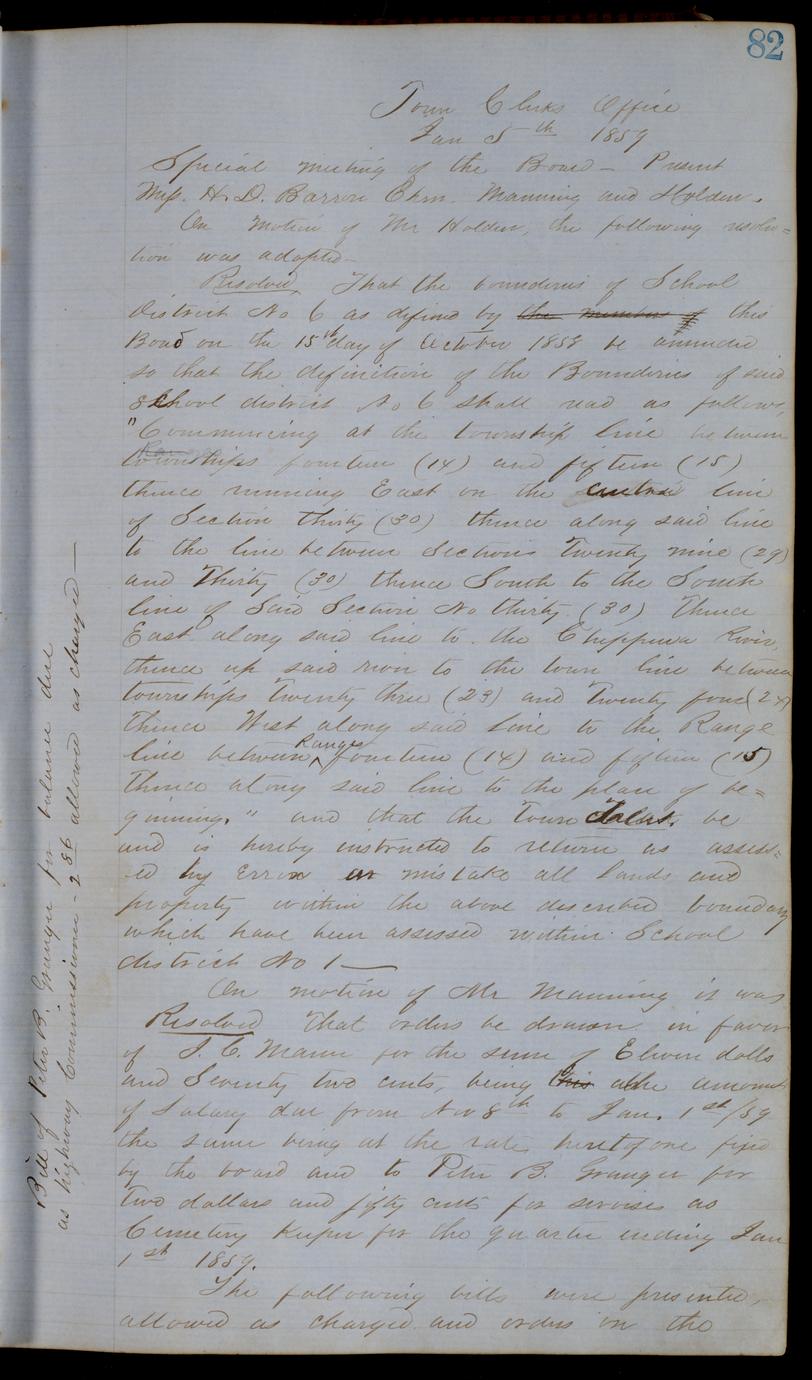 82
Town Clerks Office
Jan 5th 1859
Special meeting of the Board – Present
Mess. H. D. Barron Chm. Manning and Holden.
On motion of Mr Holden, the following resolu=
tion was adopted–
Resolved That the bounderies of School
District No 6 as defined by the members of this
Board on the 15th day of October 1858 be amended
so that the definition of the Bounderies of said
School district No 6 shall read as follows,
"Commencing at the township line between
townships fourteen (14) and fifteen (15)
thence running East on the centre line
of Section thirty (30) thence along said line
to the line between Sections Twenty nine (29)
and Thirty (30) thence South to the South
line of Said Section No thirty (30) Thence
East along said line to the Chippewa River,
thence up said river to the town line between
townships Twenty three (23) and Twenty four (24)
Thence West along said line to the Range
line between Ranges fourteen (14) and fifteen (15)
Thence along said line to the place of be=
ginning." and that the Town Clerk be
and is hereby instructed to return as assess=
ed by Error or mistake all lands and
property within the above described boundary
which have been assessed within School
district No 1—
On motion of Mr Manning it was
Resolved That orders be drawn in favor
of S. C. Mann for the sum of Eleven dolls
and Seventy two cents, being this the amount
of Salary due from Nov 8th to Jan. 1st/59
the same being at the rate heretofore fixed
by the board and to Peter B. Granger for
two dollars and fifty cents for servises as
Cemetery Keeper for the quarter ending Jan
1st 1859.
The following bills were presented,
allowed as charged and orders on the
Bill of Peter B. Granger for balance due
as highway Commissioner – 2 86 allowed as charged —